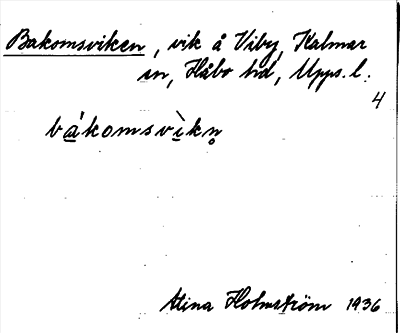 Bakomsviken, vik å Viby, Kalmar
sn, Håbo hd, Upps. l.
4
bákomsvìkn̥
Stina Holmström 1936